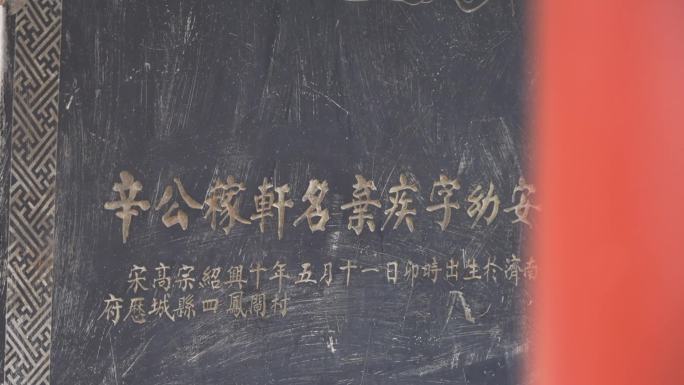 辛公稼軒名棄疾字幼安
宋高宗紹興十年五月十一日卯時出生於濟南
府歷城縣四鳳閘村